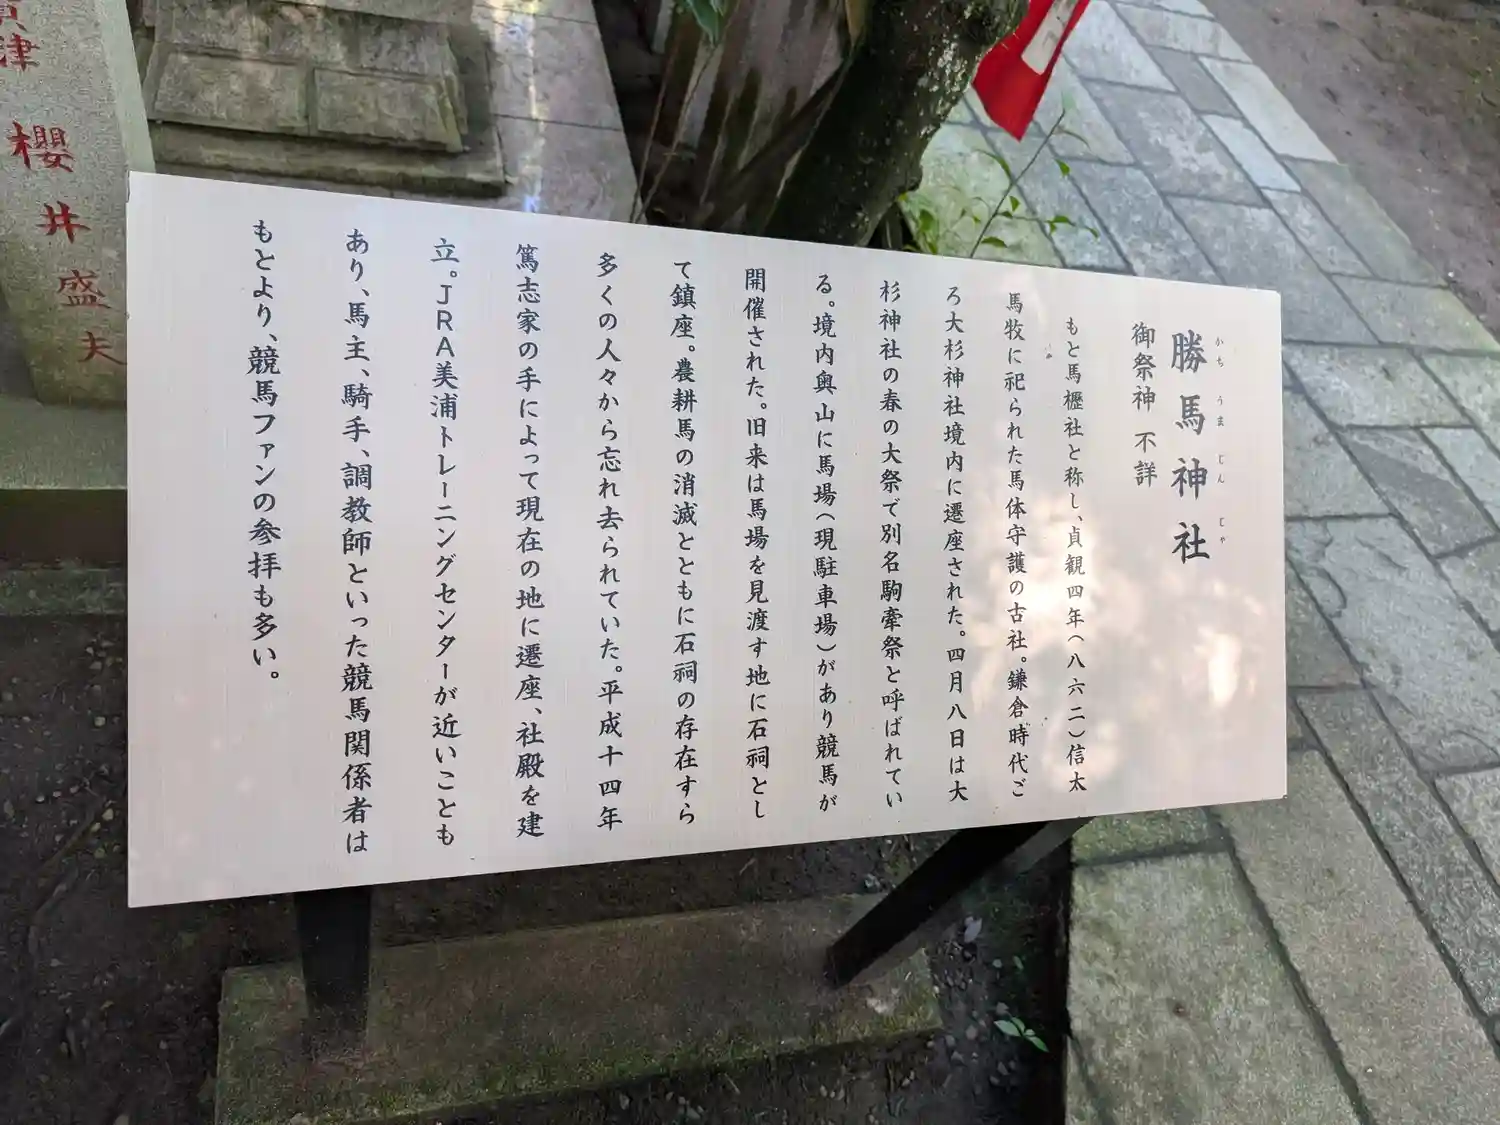 勝馬神社
かち うま じん じゃ
御祭神 不詳
もと馬櫪社と称し、貞観四年(八六二)信太
馬牧に祀られた馬体守護の古社。鎌倉時代ご
ろ大杉神社境内に遷座された。四月八日は大
杉神社の春の大祭で別名駒牽祭と呼ばれてい
る。境内奥山に馬場(現駐車場)があり競馬が
開催された。旧来は馬場を見渡す地に石祠とし
て鎮座。農耕馬の消滅とともに石祠の存在すら
多くの人々から忘れ去られていた。平成十四年
篤志家の手によって現在の地に遷座、社殿を建
立。JRA美浦トレーニングセンターが近いことも
あり、馬主、騎手、調教師といった競馬関係者は
もとより、競馬ファンの参拝も多い。
津 櫻井盛夫